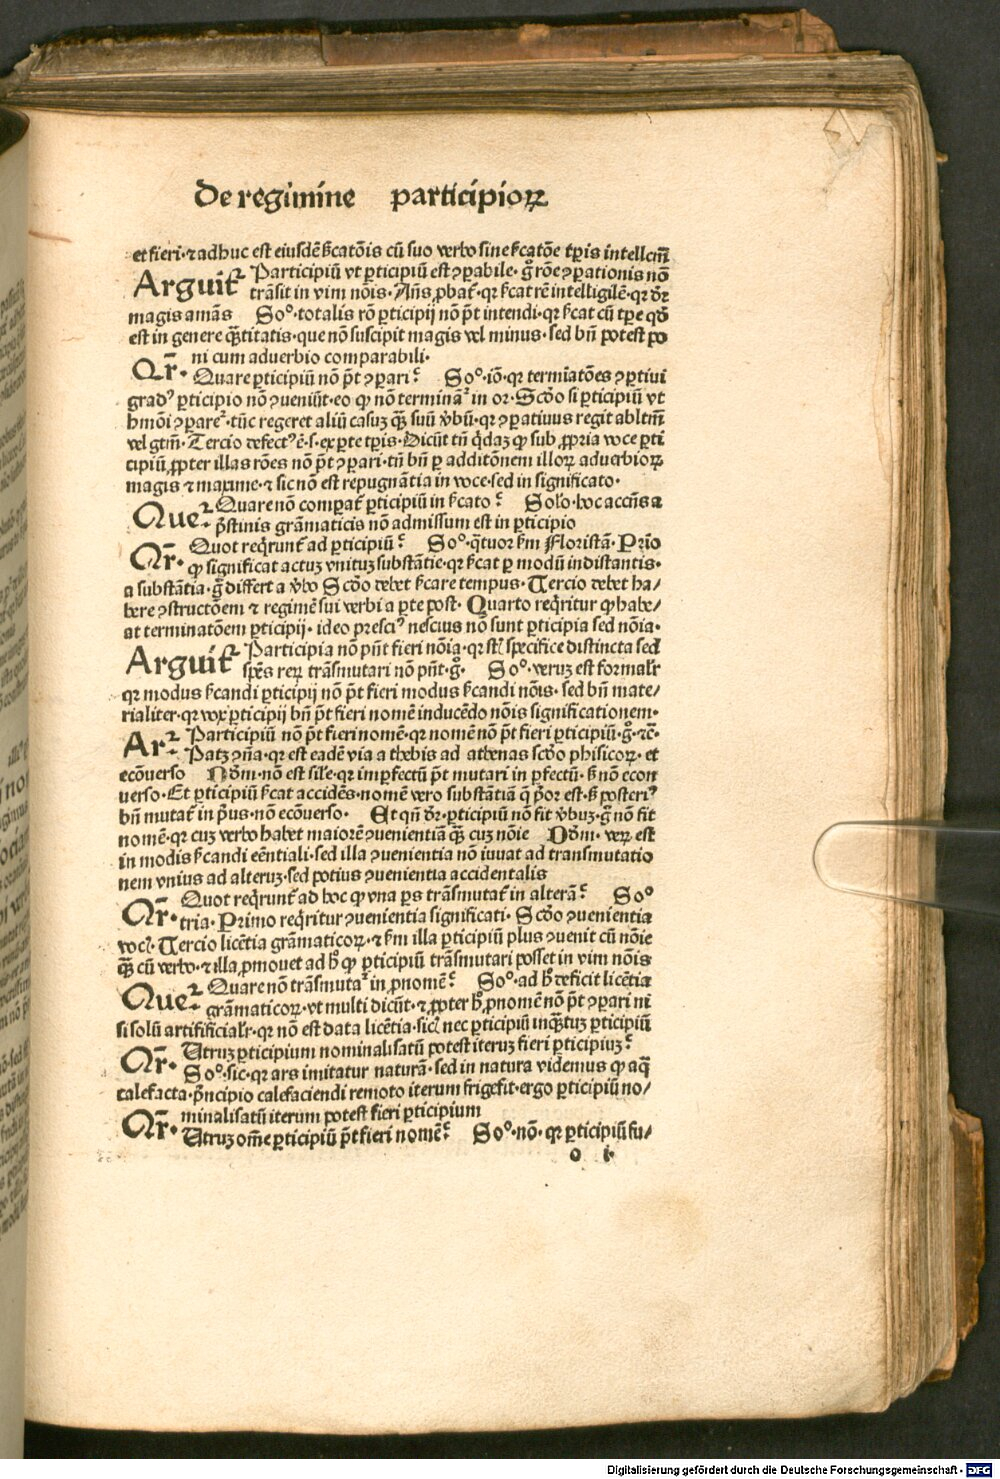 De regimine participioꝝ
et fieri·⁊ adhuc est eiusdē ſ̄catōis cū suo verbo sine ſ̄catōe tp̄is intellcm̄
Arguit̄ Participiū vt ꝑticipiū est ꝯparabile·g̊ rōe ꝯparationis nō
trāsit in vim nōis·Añs ꝓbat̄·qꝛ ſ̄cat rē intelligilē·qꝛ dr̄
magis amās So°·totalis rō ꝑticipij nō pōt intendi·qꝛ ſ̄cat cū tp̄e qd̄
est in genere q̄titatis·que nō suscipit magis vel minus·sed bn̄ potest po
ni cum aduerbio comparabili·
Qr̄· Quare ꝑticipiū nō pōt ꝯpari? So°·iō·qꝛ termiatōes ꝯpatiui
gradꝰ ꝑticipio nō ꝯueniūt·eo ꝙ nō terminant̄ in or·Scd̄o si ꝑticipiū vt
hmōi ꝯparet̄·tūc regeret aliū casuꝫ q̄ꝫ suū v̄bū·qꝛ ꝯparatiuus regit abltm̄
vel gtm̄·Tercio defectꝰ ē·s·ex ꝑte tp̄is·Dicūt tn̄ q̇daꝫ ꝙ sub ꝓpria voce ꝑti
cipiū ꝓpter illas rōes nō pōt ꝯpari·tn̄ bn̄ ꝑ additōnem illoꝝ aduerbioꝝ
magis ⁊ maxime·⁊ sic nō est repugnātia in voce·sed in significato·
Que Quare nō comparat̄ ꝑticipiū in ſ̄cato? Solo·hoc acccñs a
pristinis grāmaticis nō admissum est in ꝑticipio
Qr̄· Quot reqr̄unt̄ ad ꝑticipiū? So°·q̄tuor ſm Floristā·Prīo
ꝙ significat actuꝫ vnituꝫ substātie·qꝛ ſ̄cat ꝑ modū indistantis·
a substātia·g̊ differt a v̄bo Scd̄o debet ſ̄care tempus·Tercio debet ha/
bere ꝯstructōem ⁊ regimē sui verbi a ꝑte post·Quarto reqr̄itur ꝙ habe/
at terminatōem ꝑticipij·ideo presciꝰ nescius nō sunt ꝑticipia sed nōia·
Arguit̄ Participia nō pn̄t fieri nōia·qꝛ st̄ specifice distincta sed
sp̄es reꝝ trāsmutari nō pn̄t·g̊· So°·veruꝫ est formalr̄
qꝛ modus ſ̄candi ꝑticipij nō pōt fieri modus ſ̄candi nōis·sed bn̄ mate/
rialiter·qꝛ vox ꝑticipij bn̄ pōt fieri nomē inducēdo nōis significationem·
Ar Participiū nō pōt fieri nomē·qꝛ nomē nō pōt fieri ꝑticipiū·g̊·⁊c̄·
Patꝫ ꝯña·qꝛ est eadē via a thebis ad athenas scd̄o phisicoꝝ·et
ecōuerso Dōm·nō est sil̄e·qꝛ imꝑfectū pōt mutari in ꝑfectū·ſꝫ nō econ
uerso·Et ꝑticipiū ſ̄cat accidēs·nomē vero substātiā q̄ p̄or est·ſꝫ posteriꝰ
bn̄ mutat̄ in p̄us·nō ecōuerso· Et qn̄ dr̄·ꝑticipiū nō fit v̄buꝫ·g̊ nō fit
nomē·qꝛ cuꝫ verbo habet maiorē ꝯuenientiā q̄ꝫ cuꝫ nōie Dōm·veꝝ est
in modis ſ̄candi eēntiali·sed illa ꝯuenientia nō iuuat ad transmutatio
nem vnius ad alteruꝫ·sed potius ꝯuenientia accidentalis
Qr̄· Quot reqr̄unt̄ ad hoc ꝙ vna ꝑs trāsmutat̄ in alterā? So°
tria·Primo reqr̄itur ꝯuenientia significati·Scd̄o ꝯuenientia
vocī·Tercio licētia grāmaticoꝝ·⁊ ſm illa ꝑticipiū plus ꝯuenit cū nōie
q̄ꝫ cū verbo·⁊ illa ꝓmouet ad h̊ ꝙ ꝑticipiū trāsmutari posset in vim nōis
Que Quare nō trāsmutat̄ in ꝓnomē? So°·ad h̊ deficit licētia
grāmaticoꝝ·vt multi dicūt·⁊ ꝓpter h̊ ꝓnomē nō pōt ꝯpari ni
si solū artifificialr̄·qꝛ nō est data licētia·sic̄ nec ꝑticipiū inq̄ꝫtuꝫ ꝑticipiū
Qr̄· Utruꝫ ꝑticipium nominalisatū potest iteruꝫ fieri ꝑticipiuꝫ?
So°·sic·qꝛ ars imitatur naturā·sed in natura videmus ꝙ aq̄
calefacta·p̄ncipio calefaciendi remoto iterum frigefit·ergo ꝑticipiū no/
minalisatū iterum potest fieri ꝑticipium
Qr̄· Utruꝫ om̄e ꝑticipiū pōt fieri nomē? So°·nō·qꝛ ꝑticipiū fu/
o i
Digitalisierung gefördert durch die Deutsche Forschungsgemeinschaft - DFG